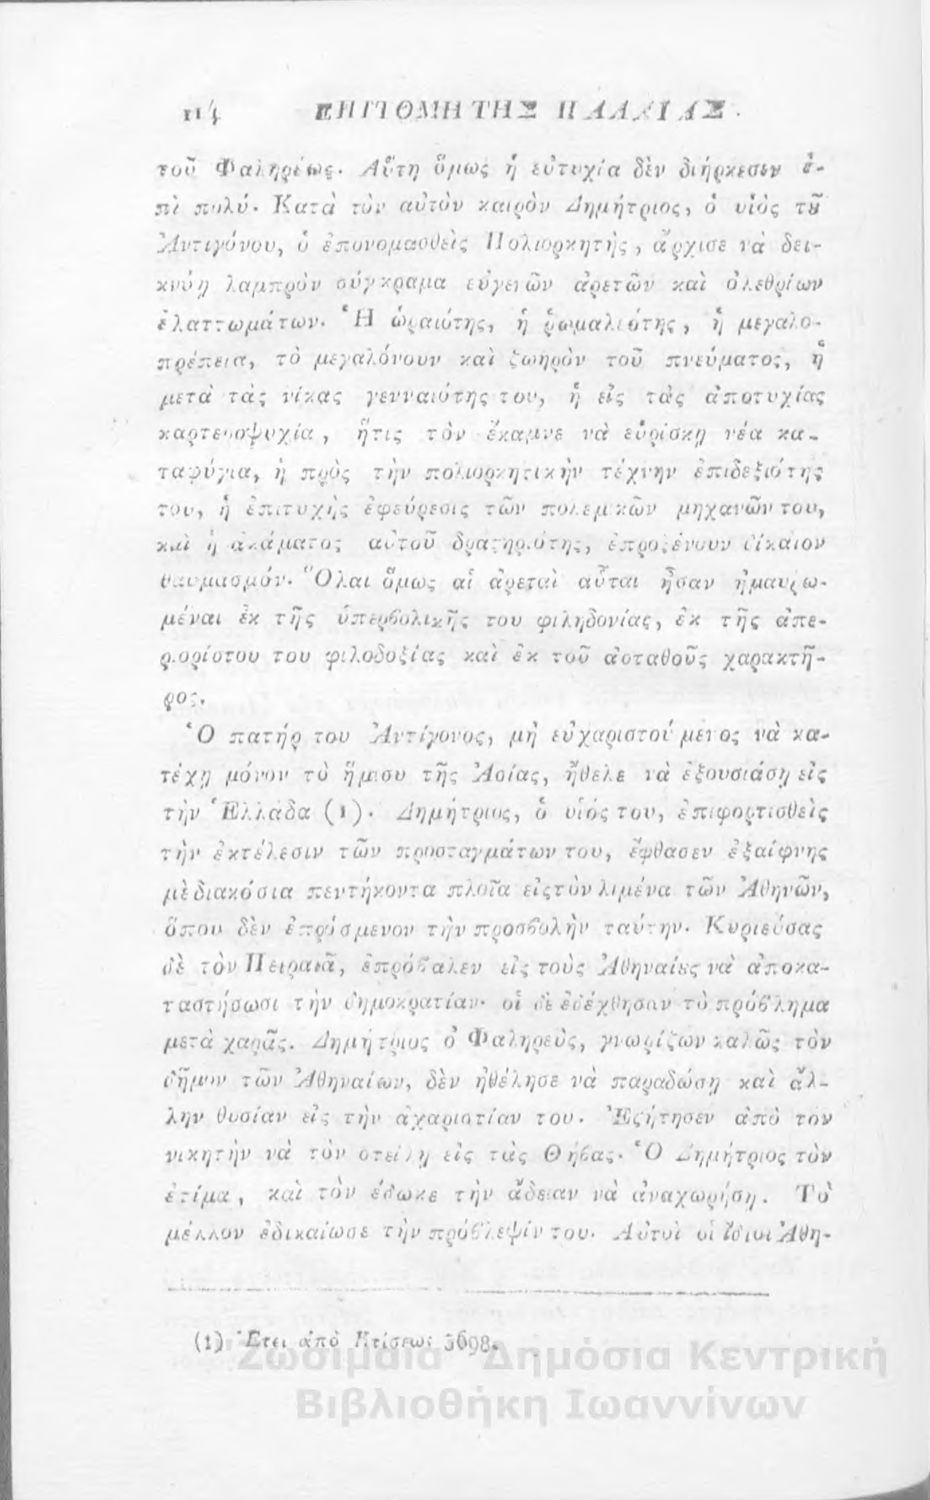 114 ΕΠΙΤΟΜΗ ΤΗΣ ΠΑΛΑΙΑΣ
τοῦ Φαληρέως. Αὕτη ὅμως ἡ εὐτυχία δὲν διήρκεσεν ἐ-
πὶ πολύ. Κατὰ τὸν αὐτὸν καιρὸν Δημήτριος, ὁ υἱὸς τȣ͂
Ἀντιγόνου, ὁ ἐπονομασθεὶς Πολιορκητὴς, ἄρχισε νὰ δει-
κνύῃ λαμπρὸν σύγκραμα εὐγενῶν ἀρετῶν καὶ ὀλεθρίων
ἐλαττωμάτων. Ἡ ὡραιότης, ἡ ῥωμαλεότης, ἡ μεγαλο-
πρέπεια, τὸ μεγαλόνουν καὶ ζωηρὸν τοῦ πνεύματος, ἡ
μετὰ τὰς νίκας γενναιότης του, ἡ εἰς τὰς ἀποτυχίας
καρτεροψυχία, ἥτις τὸν ἔκαμνε νὰ εὑρίσκῃ νέα κα-
ταφύγια, ἡ πρὸς τὴν πολιορκητικὴν τέχνην ἐπιδεξιότης
του, ἡ ἐπιτυχὴς ἐφεύρεσις τῶν πολεμικῶν μηχανῶν του,
καὶ ἡ ἀκάματος αὐτοῦ δραστηριότης, ἐπροξένουν δίκαιον
θαυμασμόν. Ὅλαι ὅμως αἱ ἀρεταὶ αὗται ἦσαν ἠμαυρω-
μέναι ἐκ τῆς ὑπερβολικῆς του φιληδονίας, ἐκ τῆς ἀπε-
ριορίστου του φιλοδοξίας καὶ ἐκ τοῦ ἀσταθοῦς χαρακτῆ-
ρος.
Ὁ πατήρ του Ἀντίγονος, μὴ εὐχαριστούμενος νὰ κα-
τέχῃ μόνον τὸ ἥμισυ τῆς Ἀσίας, ἤθελε νὰ ἐξουσιάσῃ εἰς
τὴν Ἑλλάδα (1). Δημήτριος, ὁ υἱός του, ἐπιφορτισθεὶς
τὴν ἐκτέλεσιν τῶν προσταγμάτων του, ἔφθασεν ἐξαίφνης
μὲ διακόσια πεντήκοντα πλοῖα εἰς τὸν λιμένα τῶν Ἀθηνῶν,
ὅπου δὲν ἐπρόσμενον τὴν προσβολὴν ταύτην. Κυριεύσας
δὲ τὸν Πειραιᾶ, ἐπρόβαλεν εἰς τοὺς Ἀθηναίȣς νὰ ἀποκα-
ταστήσωσι τὴν δημοκρατίαν· οἱ δὲ ἐδέχθησαν τὸ πρόβλημα
μετὰ χαρᾶς. Δημήτριος ὁ Φαληρεὺς, γνωρίζων καλῶς τὸν
δῆμον τῶν Ἀθηναίων, δὲν ἠθέλησε νὰ παραδώσῃ καὶ ἄλ-
λην θυσίαν εἰς τὴν ἀχαριστίαν του. Ἐζήτησεν ἀπὸ τὸν
νικητὴν νὰ τὸν στείλῃ εἰς τὰς Θήβας. Ὁ Δημήτριος τὸν
ἐτίμα, καὶ τὸν ἔδωκε τὴν ἄδειαν νὰ ἀναχωρήσῃ. Τὸ
μέλλον ἐδικαίωσε τὴν πρόβλεψίν του. Αὐτοὶ οἱ ἴδιοι Ἀθη-
(1) Ἔτει ἀπὸ Κτίσεως 3698.
Ζωσιμαία Δημόσια Κεντρική
Βιβλιοθήκη Ιωαννίνων